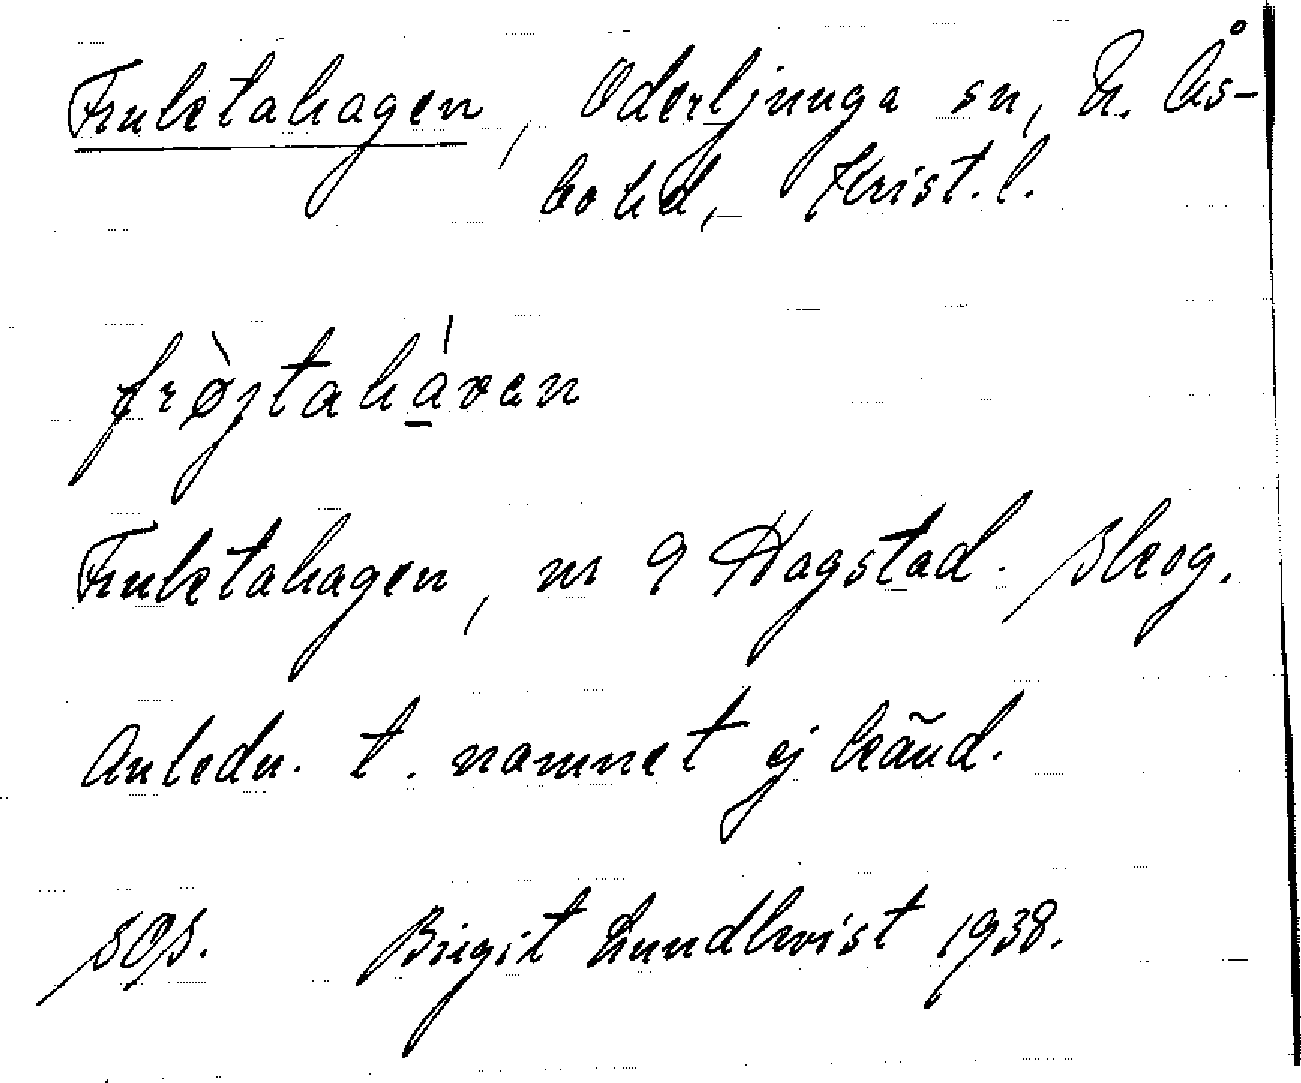 Fruktahagen, Oderljunga sn, N. Ås-
bo hd, Krist. l.
frøjtahaven
Fruktahagen, nr 9 Hagstad. Skog.
Anledn. t. namnet ej känd.
SOS. Birgit Lundkvist 1938.